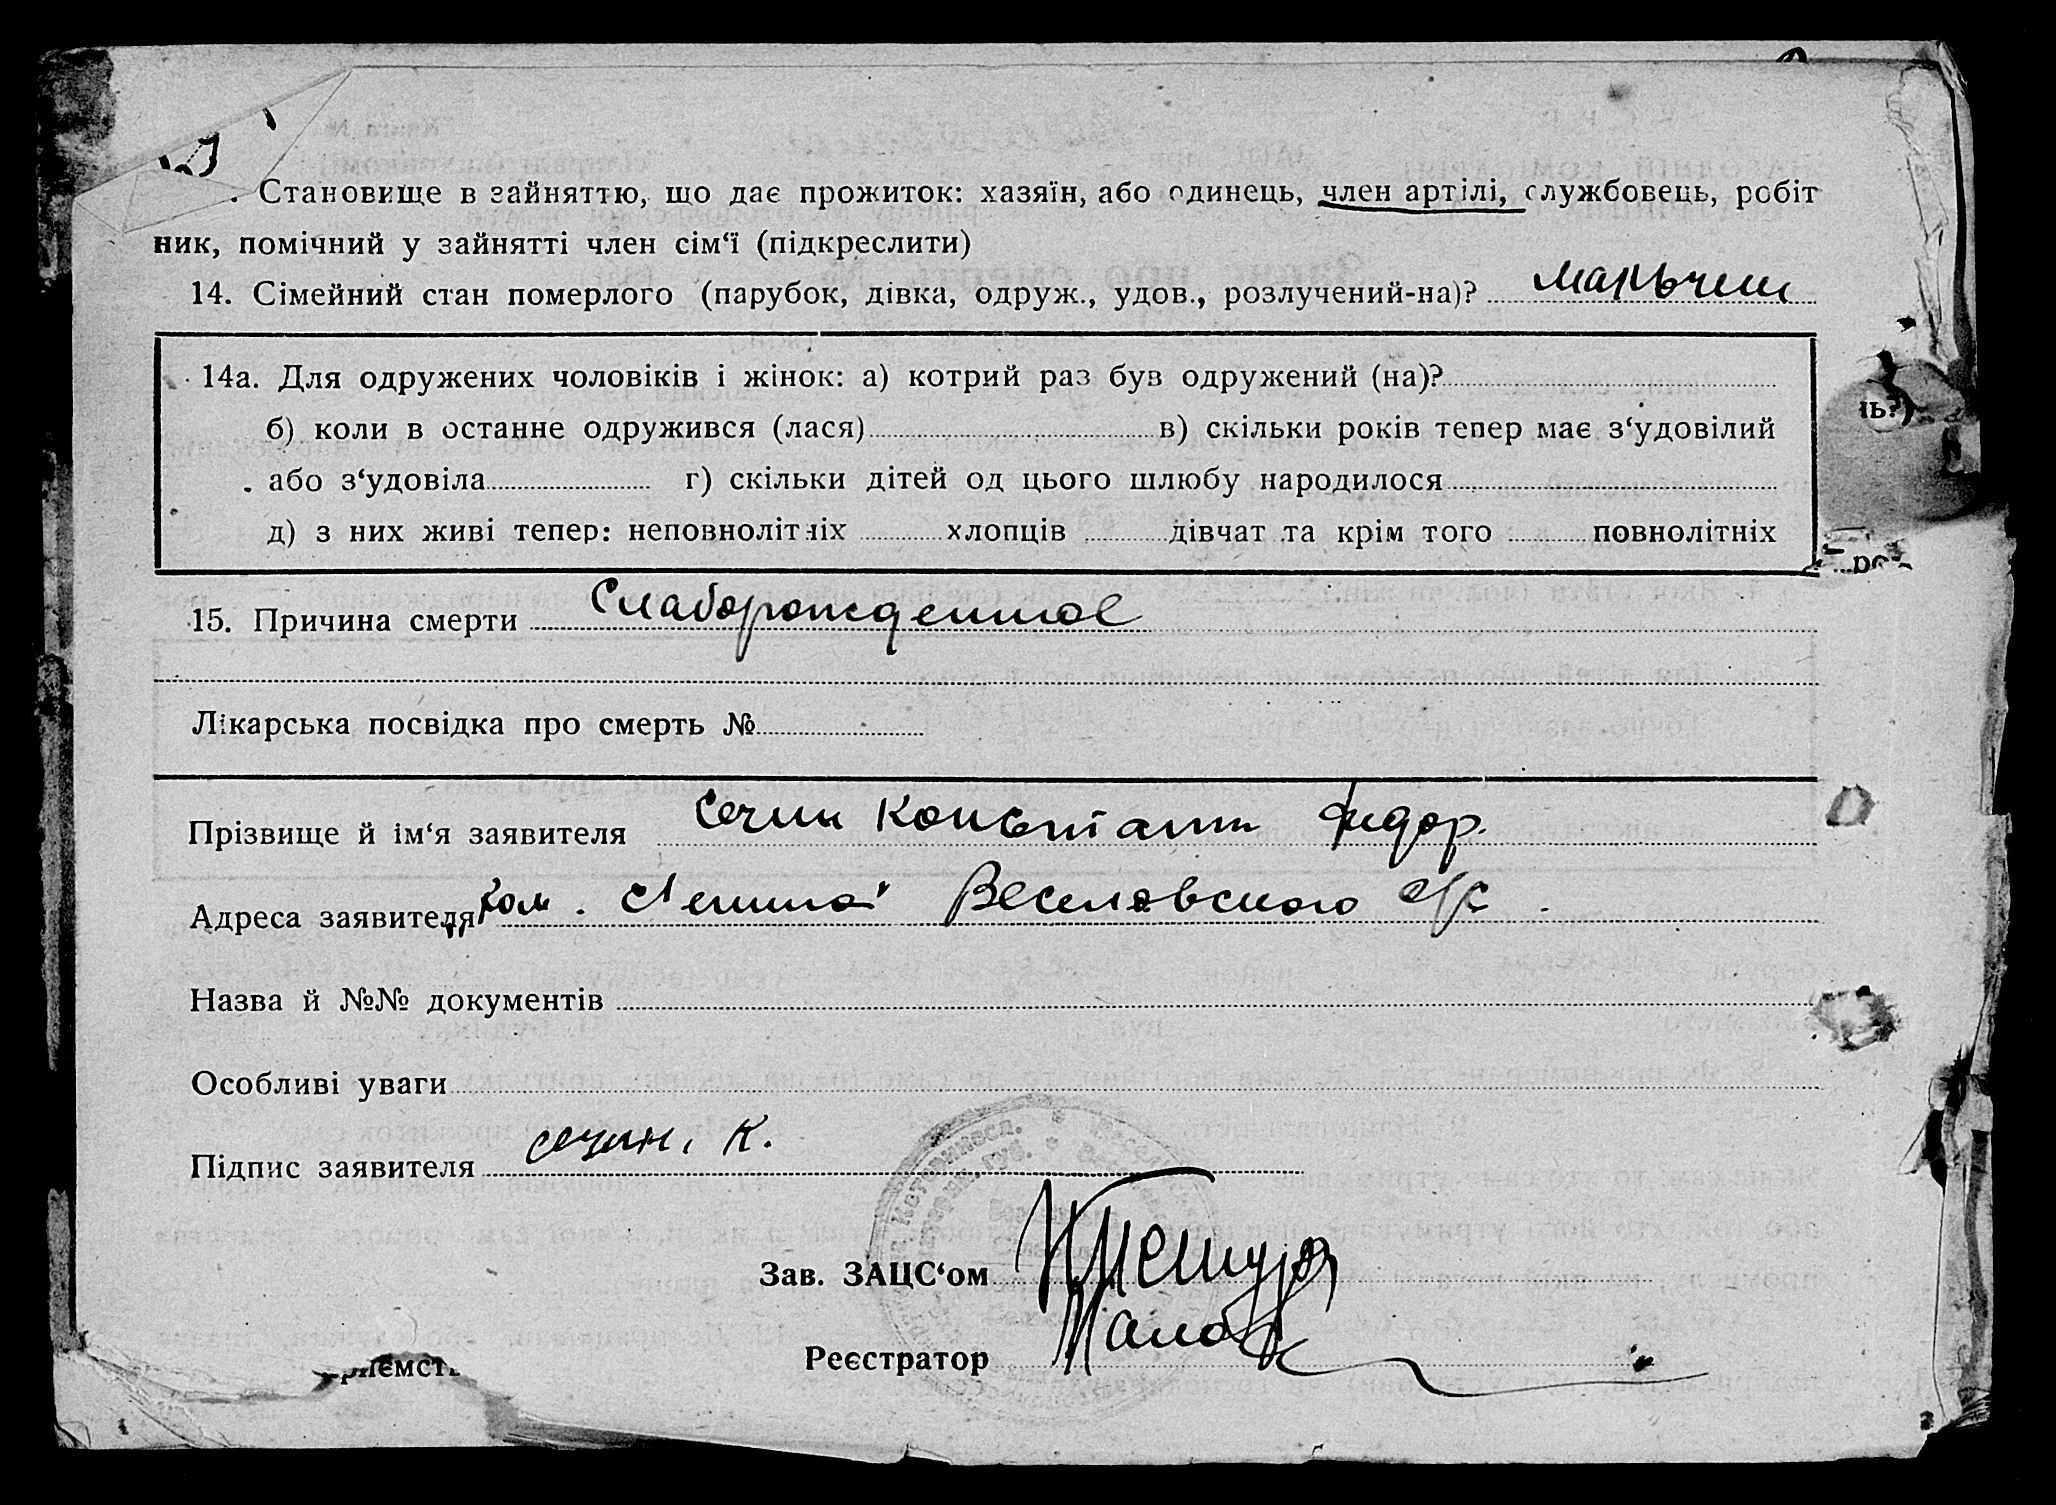 Становище в зайняттю, що дає прожиток: хазяїн, або одинець, член артілі, службовець, робіт
ник, помічний у зайнятті член сім‘ї (підкреслити)
14. Сімейний стан померлого (парубок, дівка, одруж., удов., розлучений-на)? мальчик
14а. Для одружених чоловіків і жінок: а) котрий раз був одружений (на)?
б) коли в останне одружився (лася) в) скільки років тепер має з‘удовілий
або з‘удовіла г) скільки дітей од цього шлюбу народилося
д) з них живі тепер: неповнолітніх хлопців дівчат та крім того повнолітніх
15. Причина смерти Слаборожденное
Лікарська посвідка про смерть №
Прізвище й ім‘я заявителя Сечин Константин Федор.
Адреса заявителя Ком. „Ленина" Веселовского с/с
Назва й №№ документів
Особливі уваги
Підпис заявителя Сечин. К.
Зав. ЗАЦС‘ом
Реєстратор